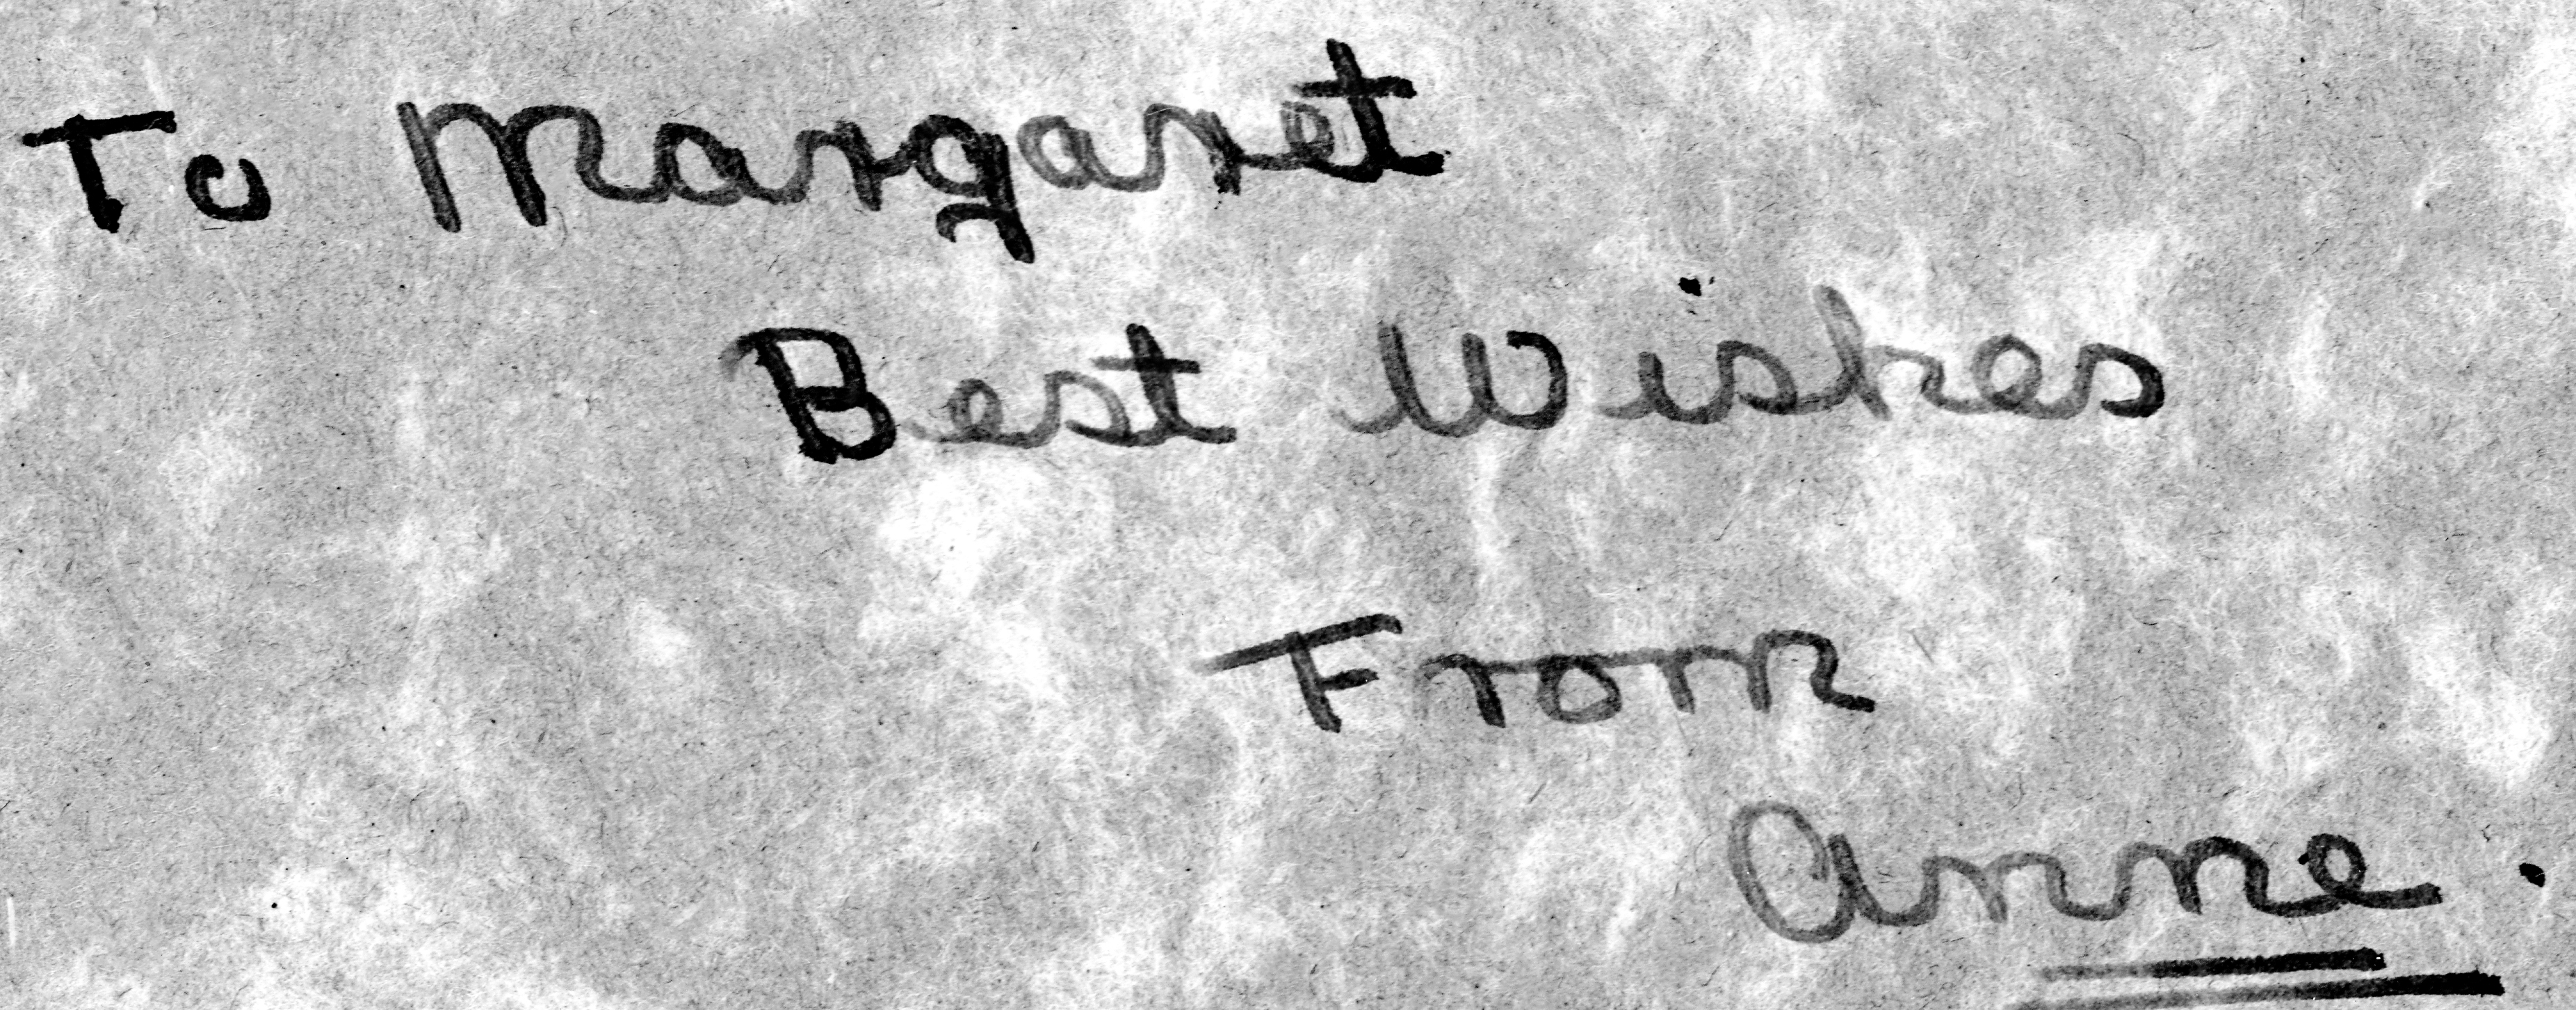 To Margaret
Best Wishes
From
Anne.